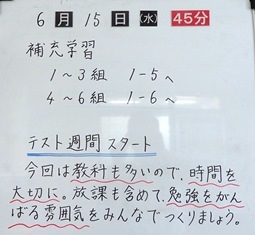 6月15日(水) 45分
補充学習
1～3組 1-5へ
4～6組 1-6へ
テスト週間スタート
今回は教科も多いので、時間を
大切に。放課も含めて、勉強をがん
ばる雰囲気をみんなでつくりましょう。